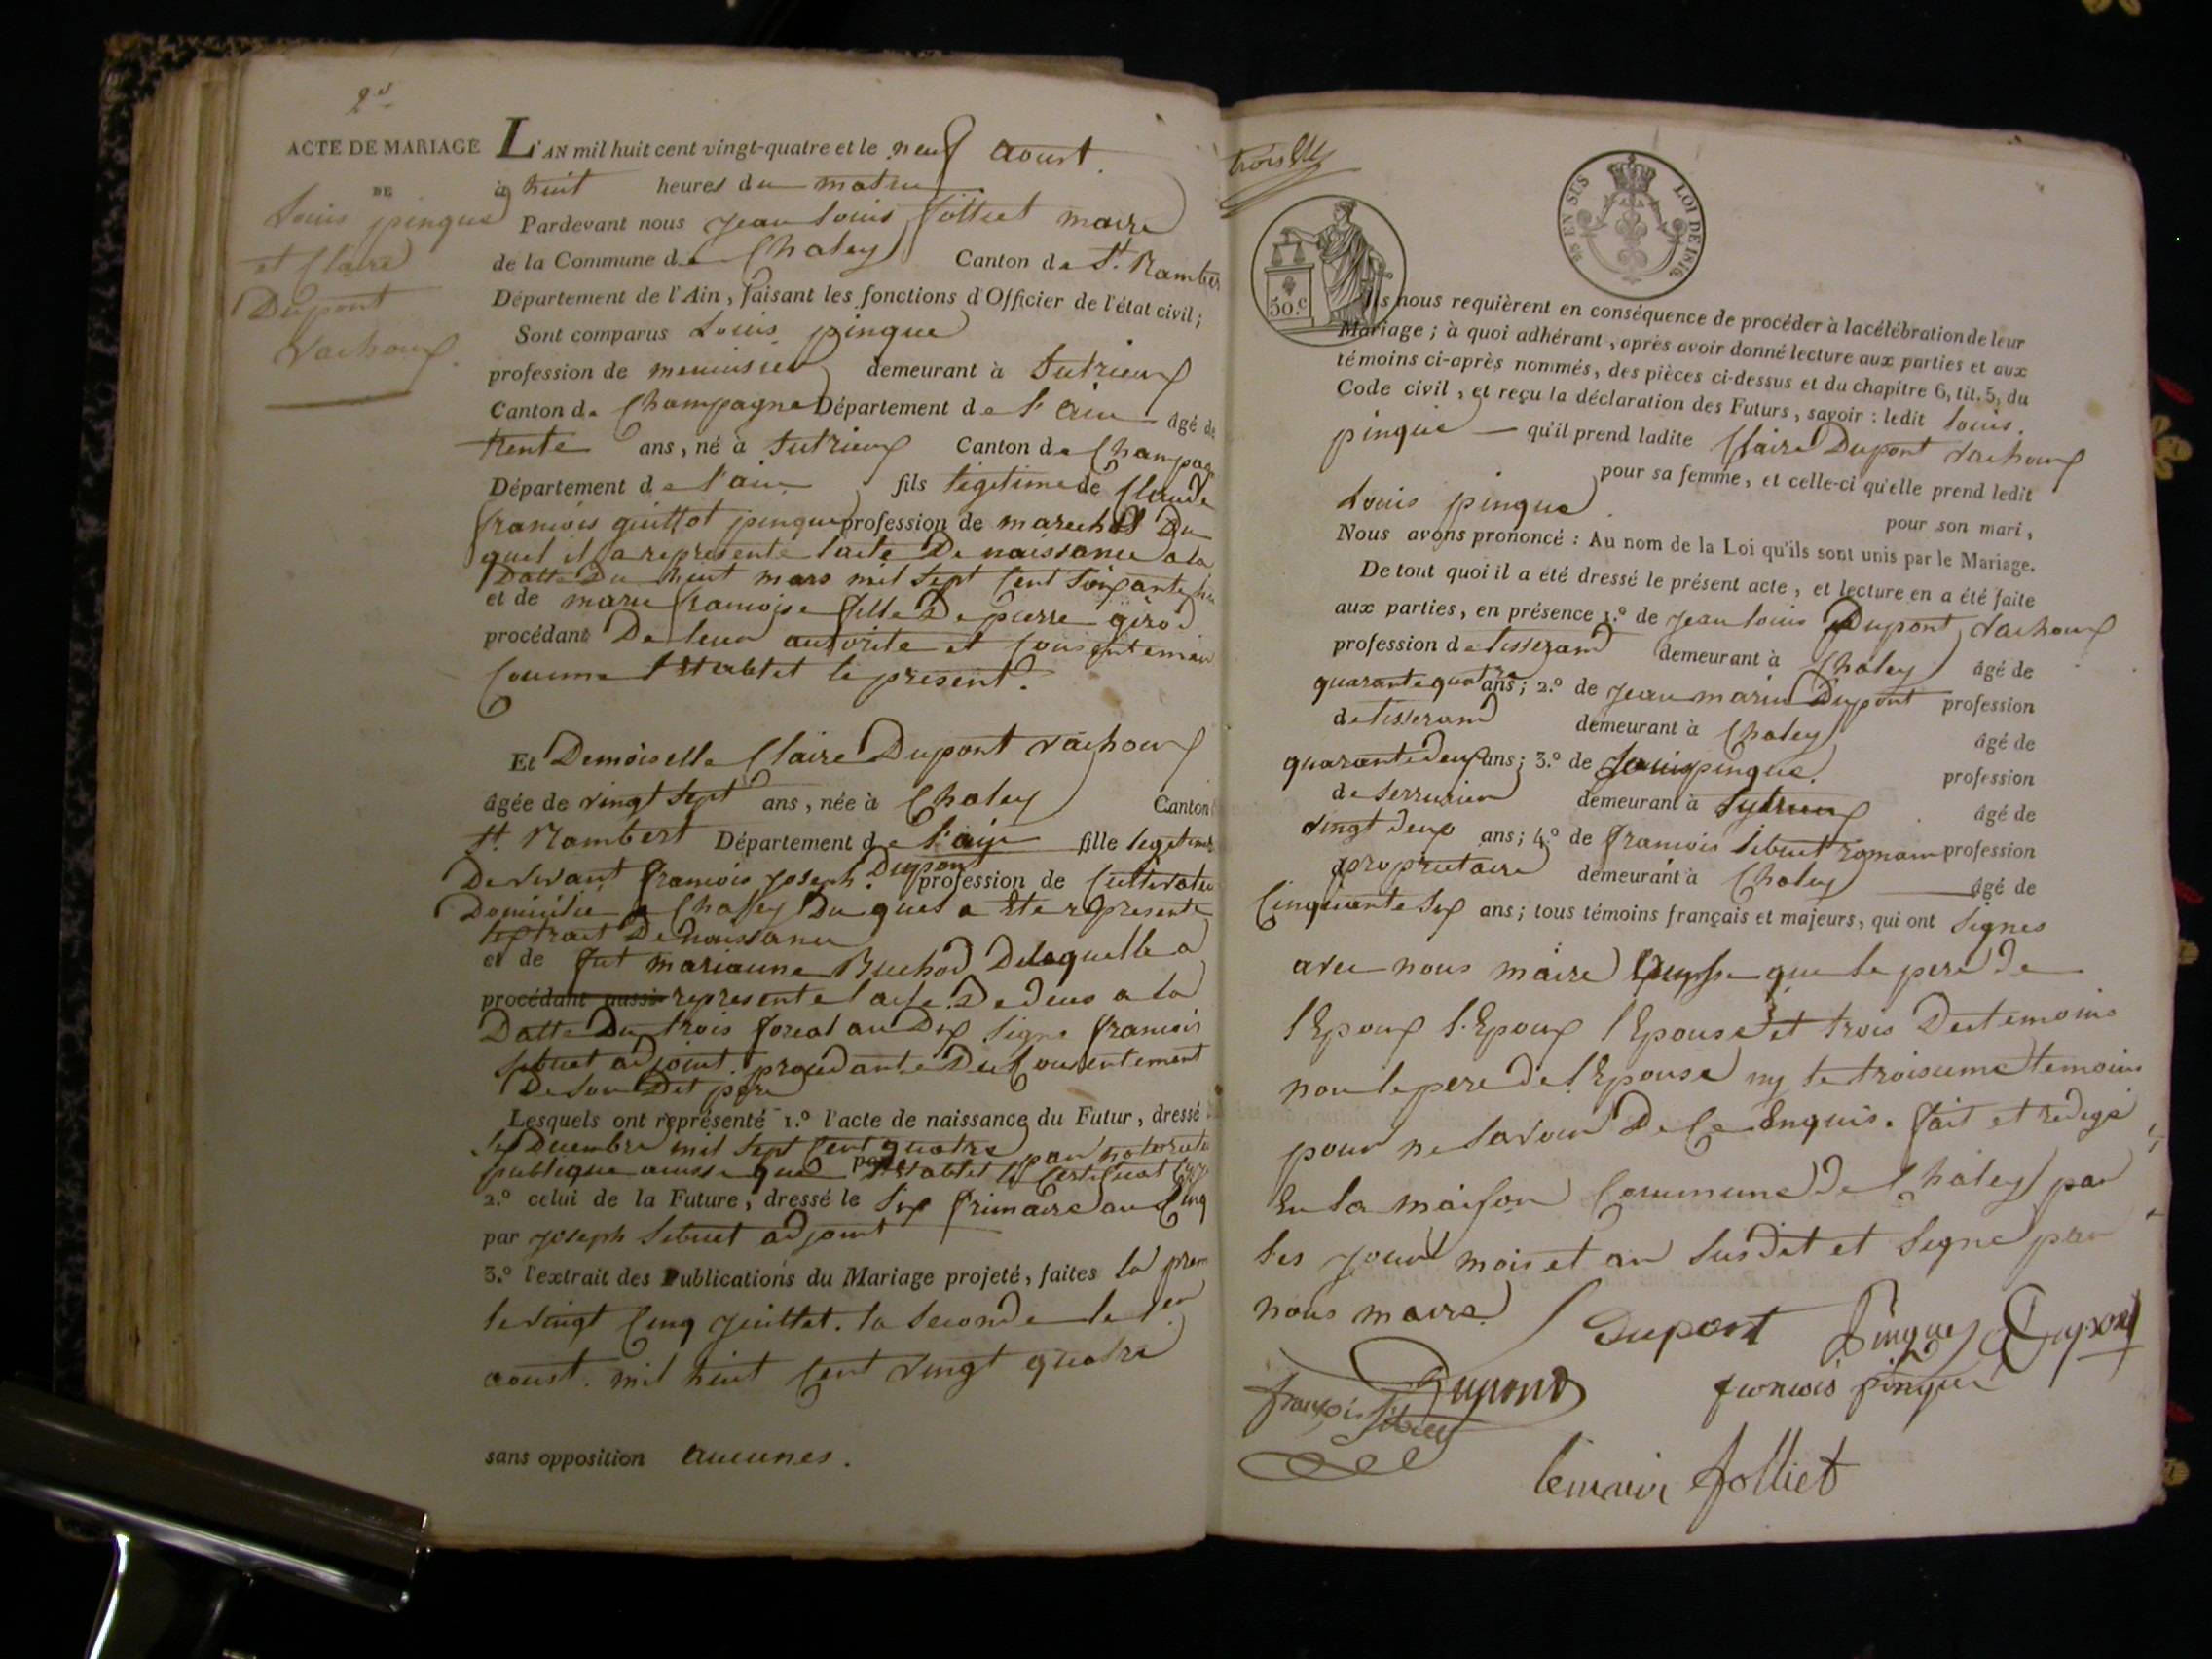 2.e
ACTE DE MARIAGE
DE
Louis pingue
et Claire
Dupont
Vachoux
L'AN mil huit cent vingt-quatre et le neuf aoust
à huit heures du matin
Pardevant nous Jean Louis Jolliet maire
de la Commune de Chaley Canton de St. Rambert
Département de l'Ain, faisant les fonctions d'Officier de l'état civil;
Sont comparus Louis pingue
profession de menuisier demeurant à Sutrieux
Canton de Champagne Département de l'ain âgé de
trente ans, né à Sutrieux Canton de Champag
Département de l'ain fils legitime de Claude
francois guillot pingue profession de marechal Du
quel il a represente l'acte De naissance a la
Datte Du huit mars mil sept Cent Soixante
et de marie francoise fille De pierre girod
procédant De leur autorite et Consentemen
Comme Etablit le present.
Et Demoiselle Claire Dupont Vachoux
âgée de vingt sept ans, née à Chaley Canton
St. Rambert Département de l'ain fille legitime
De vivant francois Joseph Dupont profession de Cultivateur
Domicilie a Chaley Du quel a Ete represente
lextrait De naissance
et de fut marianne Buchod De laquelle a
procédant aussi represente l'acte De deces a la
Datte Du trois floreal an Dix Signe francois
Sibuet adjoint. procedante Du Consentement
De Son Dit pere
Lesquels ont représenté 1.º l'acte de naissance du Futur, dressé
Decembre mil Sept Cent quatre par notoriete
publique ausse que par Etablit le Certificat
2.º celui de la Future, dressé le Six frimaire an Cinq
par Joseph Sibuet adjoint
3.º l'extrait des Publications du Mariage projeté, faites la prem
le vingt Cinq Juillet. la Seconde le 1er
aoust. mil huit Cent vingt quatre
sans opposition aucunes.
EN SUS
LOI DE 1816.
50.c
Ils nous requièrent en conséquence de procéder à la célébration de leur
Mariage; à quoi adhérant, après avoir donné lecture aux parties et aux
témoins ci-après nommés, des pièces ci-dessus et du chapitre 6, tit. 5, du
Code civil, et reçu la déclaration des Futurs, savoir: ledit louis
pingue qu'il prend ladite Claire Dupont Vachoux
pour sa femme, et celle-ci qu'elle prend ledit
Louis pingue pour son mari,
Nous avons prononcé: Au nom de la Loi qu'ils sont unis par le Mariage.
De tout quoi il a été dressé le présent acte, et lecture en a été faite
aux parties, en présence 1.º de Jean louis Dupont Vachoux
profession de tisserand demeurant à Chaley âgé de
quarante quatre ans; 2.º de Jean marie Dupont profession
de tisserand demeurant à Chaley âgé de
quarante deux ans; 3.º de Louis pingue profession
de Serrurier demeurant à Sutrieux âgé de
vingt deux ans; 4.º de francois Sibuet romain profession
proprietaire demeurant à Chaley âgé de
Cinquante Six ans; tous témoins français et majeurs, qui ont Signes
avec nous maire que le pere De
l'Epoux l'Epoux l'Epouse et trois Des temoins
non le pere De l'Epouse ny le troisieme temoins
pour ne Savoir De Ce Enquis. fait et redige
En la maison Commune De Chaley par
les Jour mois et an Susdit et Signe par
nous maire
Dupont Pingue Dupont
Dupond francois pingue
françois Sibuet
le maire Jolliet